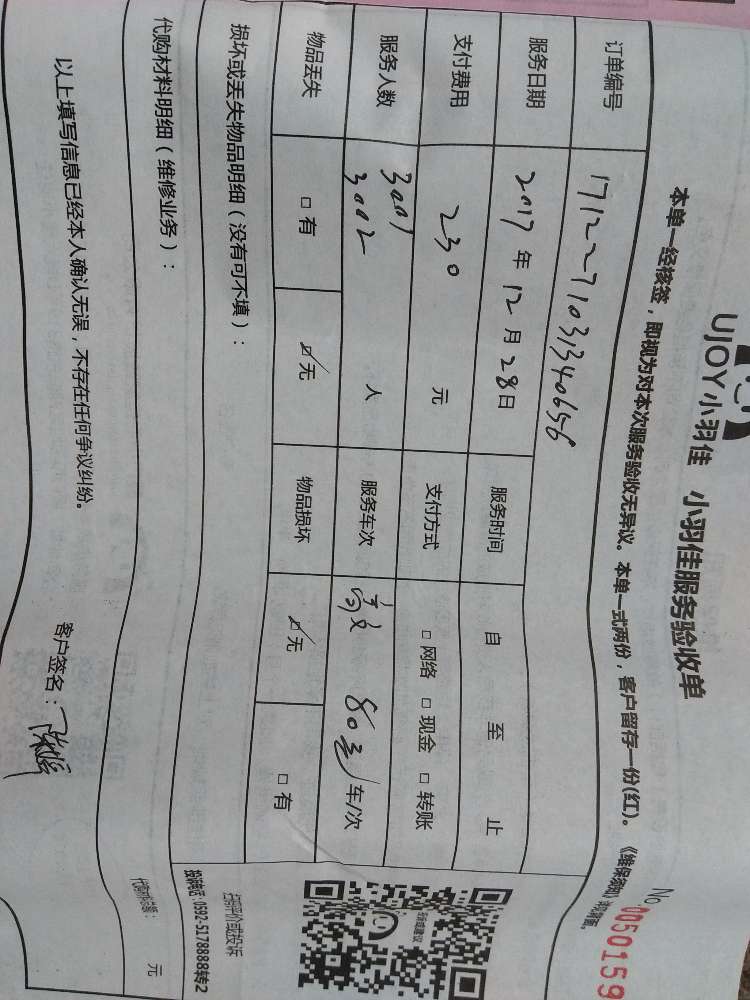 UJOY小羽佳 小羽佳服务验收单
No 0050159
本单一经核签，即视为对本次服务验收无异议。本单一式两份，客户留存一份(红)。
订单编号 171227103134065
服务日期 2017 年 12 月 28 日 服务时间 自 至 止
支付费用 230 元 支付方式 □网络 □现金 □转账
服务人数 3001 3002 人 服务车次 80 车/次
物品丢失 □有 ☑无 物品损坏 ☑无 □有
损坏或丢失物品明细（没有可不填）：
扫码评价或投诉
投诉电话：0592-5178888转2
代购材料明细（维修业务）：
元
以上填写信息已经本人确认无误，不存在任何争议纠纷。
客户签名：